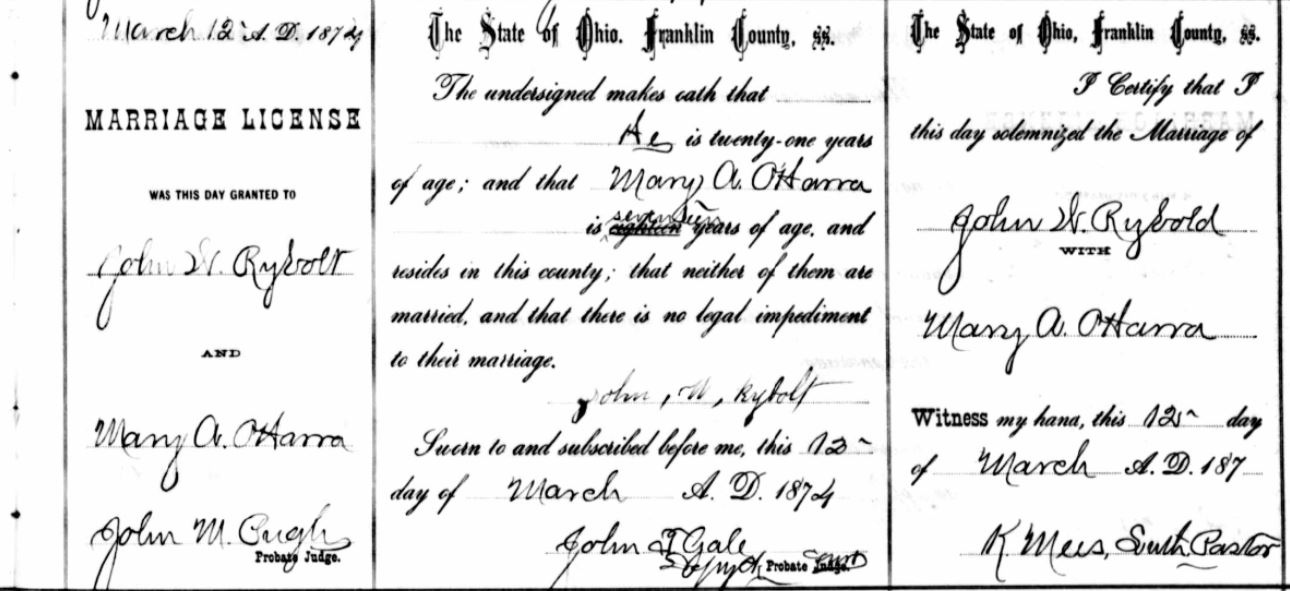 March 12 A. D. 1874
MARRIAGE LICENSE
WAS THIS DAY GRANTED TO
John W. Rybolt
AND
Mary A. OHarra
John M. Pugh
Probate Judge.
The State of Ohio. Franklin County, ss.
The undersigned makes oath that
He is twenty-one years
of age; and that Mary A. OHarra
seventeen
is eighteen years of age, and
resides in this county; that neither of them are
married, and that there is no legal impediment
to their marriage.
John, W, Rybolt
Sworn to and subscribed before me, this 12
day of March A. D. 1874
John T Gale
Probate Judge. Court
The State of Ohio, Franklin County, ss.
I Certify that I
this day solemnized the Marriage of
John W. Rybold
WITH
Mary A. OHarra
Witness my hand, this 12 day
of March A. D. 187
K Mees, Luth. Pastor